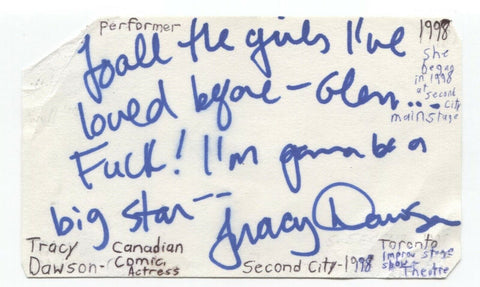 performer
1998
To all the girls I've
loved before - Glen...
Fuck! I'm gonna be a
big star --
Tracy Dawson
she
began
in 1998
at
second
city
mainstage
Tracy
Dawson-
Canadian
Comic,
Actress
Second City-1998
Toronto
Improv stage
show-
Theatre